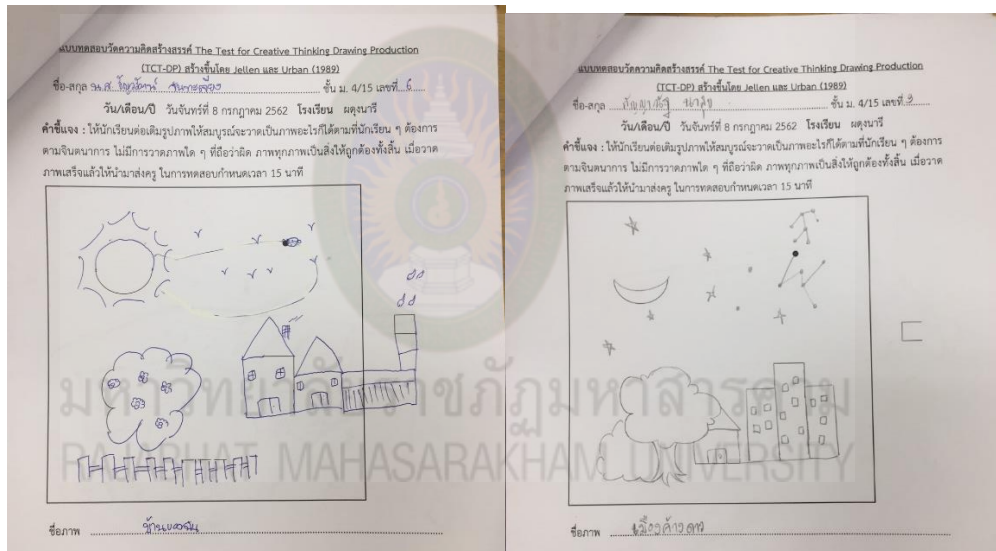 แบบทดสอบวัดความคิดสร้างสรรค์ The Test for Creative Thinking Drawing Production
(TCT-DP) สร้างขึ้นโดย Jellen และ Urban (1989)
ชื่อ-สกุล น.ส. ชั้น ม. 4/15 เลขที่ 6
วัน/เดือน/ปี วันจันทร์ที่ 8 กรกฎาคม 2562 โรงเรียน ผดุงนารี
คำชี้แจง : ให้นักเรียนต่อเติมรูปภาพให้สมบูรณ์จะวาดเป็นภาพอะไรก็ได้ตามที่นักเรียน ๆ ต้องการ
ตามจินตนาการ ไม่มีการวาดภาพใด ๆ ที่ถือว่าผิด ภาพทุกภาพเป็นสิ่งให้ถูกต้องทั้งสิ้น เมื่อวาด
ภาพเสร็จแล้วให้นำมาส่งครู ในการทดสอบกำหนดเวลา 15 นาที
ชื่อภาพ บ้านของฉัน
แบบทดสอบวัดความคิดสร้างสรรค์ The Test for Creative Thinking Drawing Production
(TCT-DP) สร้างขึ้นโดย Jellen และ Urban (1989)
ชื่อ-สกุล ชั้น ม. 4/15 เลขที่ 3
วัน/เดือน/ปี วันจันทร์ที่ 8 กรกฎาคม 2562 โรงเรียน ผดุงนารี
คำชี้แจง : ให้นักเรียนต่อเติมรูปภาพให้สมบูรณ์จะวาดเป็นภาพอะไรก็ได้ตามที่นักเรียน ๆ ต้องการ
ตามจินตนาการ ไม่มีการวาดภาพใด ๆ ที่ถือว่าผิด ภาพทุกภาพเป็นสิ่งให้ถูกต้องทั้งสิ้น เมื่อวาด
ภาพเสร็จแล้วให้นำมาส่งครู ในการทดสอบกำหนดเวลา 15 นาที
ชื่อภาพ เมืองค้างดาว
มหาวิทยาลัยราชภัฏมหาสารคาม
RAJABHAT MAHASARAKHAM UNIVERSITY